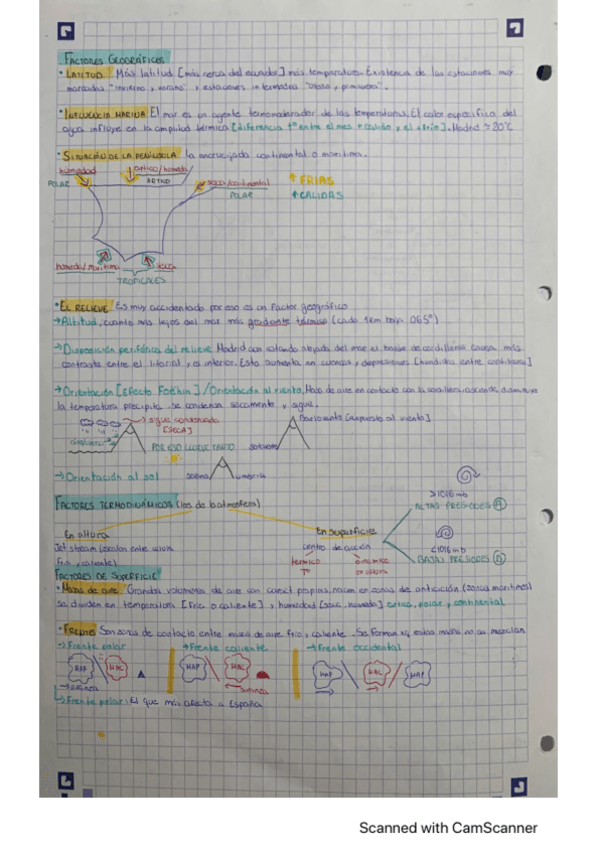 FACTORES GEOGRÁFICOS
• LATITUD Más latitud [más cerca del ecuador] más temperatura. Existencia de las estaciones muy
marcadas "invierno y verano" y estaciones intermedias "otoño y primavera".
• INFLUENCIA MARINA El mar es un agente termomoderador de las temperaturas. El calor específico del
agua influye en la amplitud térmica [diferencia tº entre el mes + cálido y el + frío]. Madrid ≈ 20ºC
• SITUACIÓN DE LA PENÍNSULA la encrucijada continental o marítima.
humedad
ártico/humedo
POLAR
ÁRTICO
seco/continental
POLAR
↑ FRIAS
↑ CALIDAS
humeda/marítima
seca
TROPICALES
• EL RELIEVE Es muy accidentado por eso es un factor geográfico
→ Altitud, cuanto más lejos del mar más gradiente térmico (cada 1km baja 0.65º)
→ Disposición periférica del relieve Madrid aun estando alejada del mar el borde de cordilleras causa más
contraste entre el litoral y el interior. Esto aumenta en cuencas y depresiones [hundidas entre cordilleras]
→ Orientación [Efecto Foëhn] / Orientación al viento, Masa de aire en contacto con la cordillera asciende, disminuye
la temperatura precipita se condensa y sigue.
→ sigue condensada
[SECA]
Barlovento [expuesto al viento]
POR ESO LLUEVE TANTO
sotavento
→ Orientación al sol
solana
umbría
FACTORES TERMODINÁMICOS (los de la atmósfera)
>1016 mb
ALTAS PRESIONES Ⓐ
En altura
En superficie
<1016 mb
BAJAS PRESIONES Ⓑ
Jet stream (escalón entre
frío y caliente)
centro de acción
térmico
Tº
dinámico
FACTORES DE SUPERFICIE
• Masas de aire Grandes volúmenes de aire con caract. propias, nacen en zonas de anticiclón (zonas marítimas)
se dividen en temperatura [fría o caliente] y humedad [seca, húmeda] ártica, polar y continental
• FRENTE Son zonas de contacto entre masa de aire frío y caliente. Se forman xq estas masas no se mezclan
→ Frente polar
→ Frente caliente
→ Frente occidental
MAF
MAC
MAF
MAC
MAF
MAC
MAF
↳ Frente polar: El que más afecta a España
Scanned with CamScanner